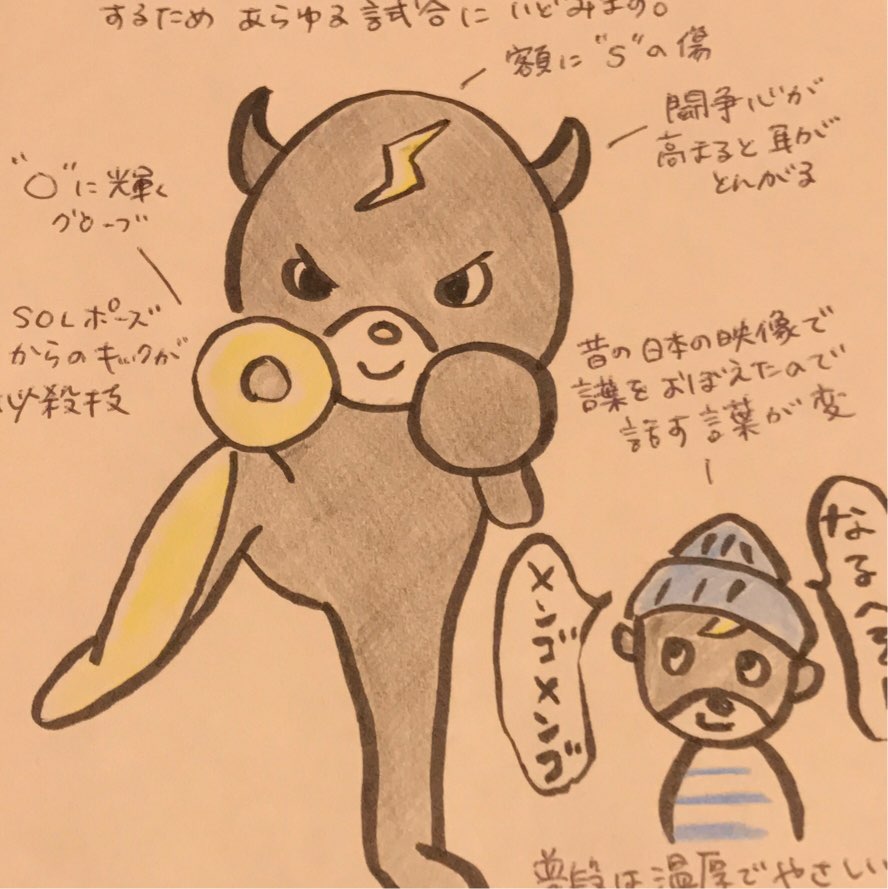 するため あらゆる試合に いどみます。
額に"S"の傷
闘争心が
高まると耳が
とんがる
"O"に輝く
グローブ
SOLポーズ
からのキックが
必殺技
昔の日本の映像で
言葉をおぼえたので
話す言葉が変
メンゴメンゴ
なるへそ
普段は温厚でやさしい